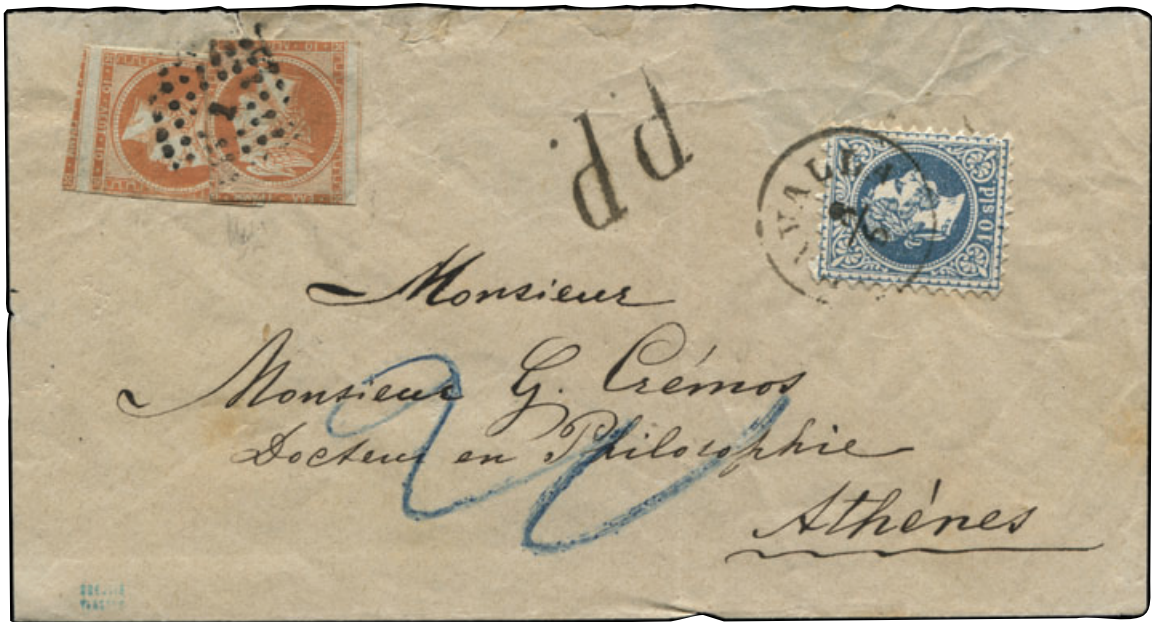 p.p.
10 sld
Monsieur
Monsieur G. Crémos
Docteur en Philosophie
Athénes
20